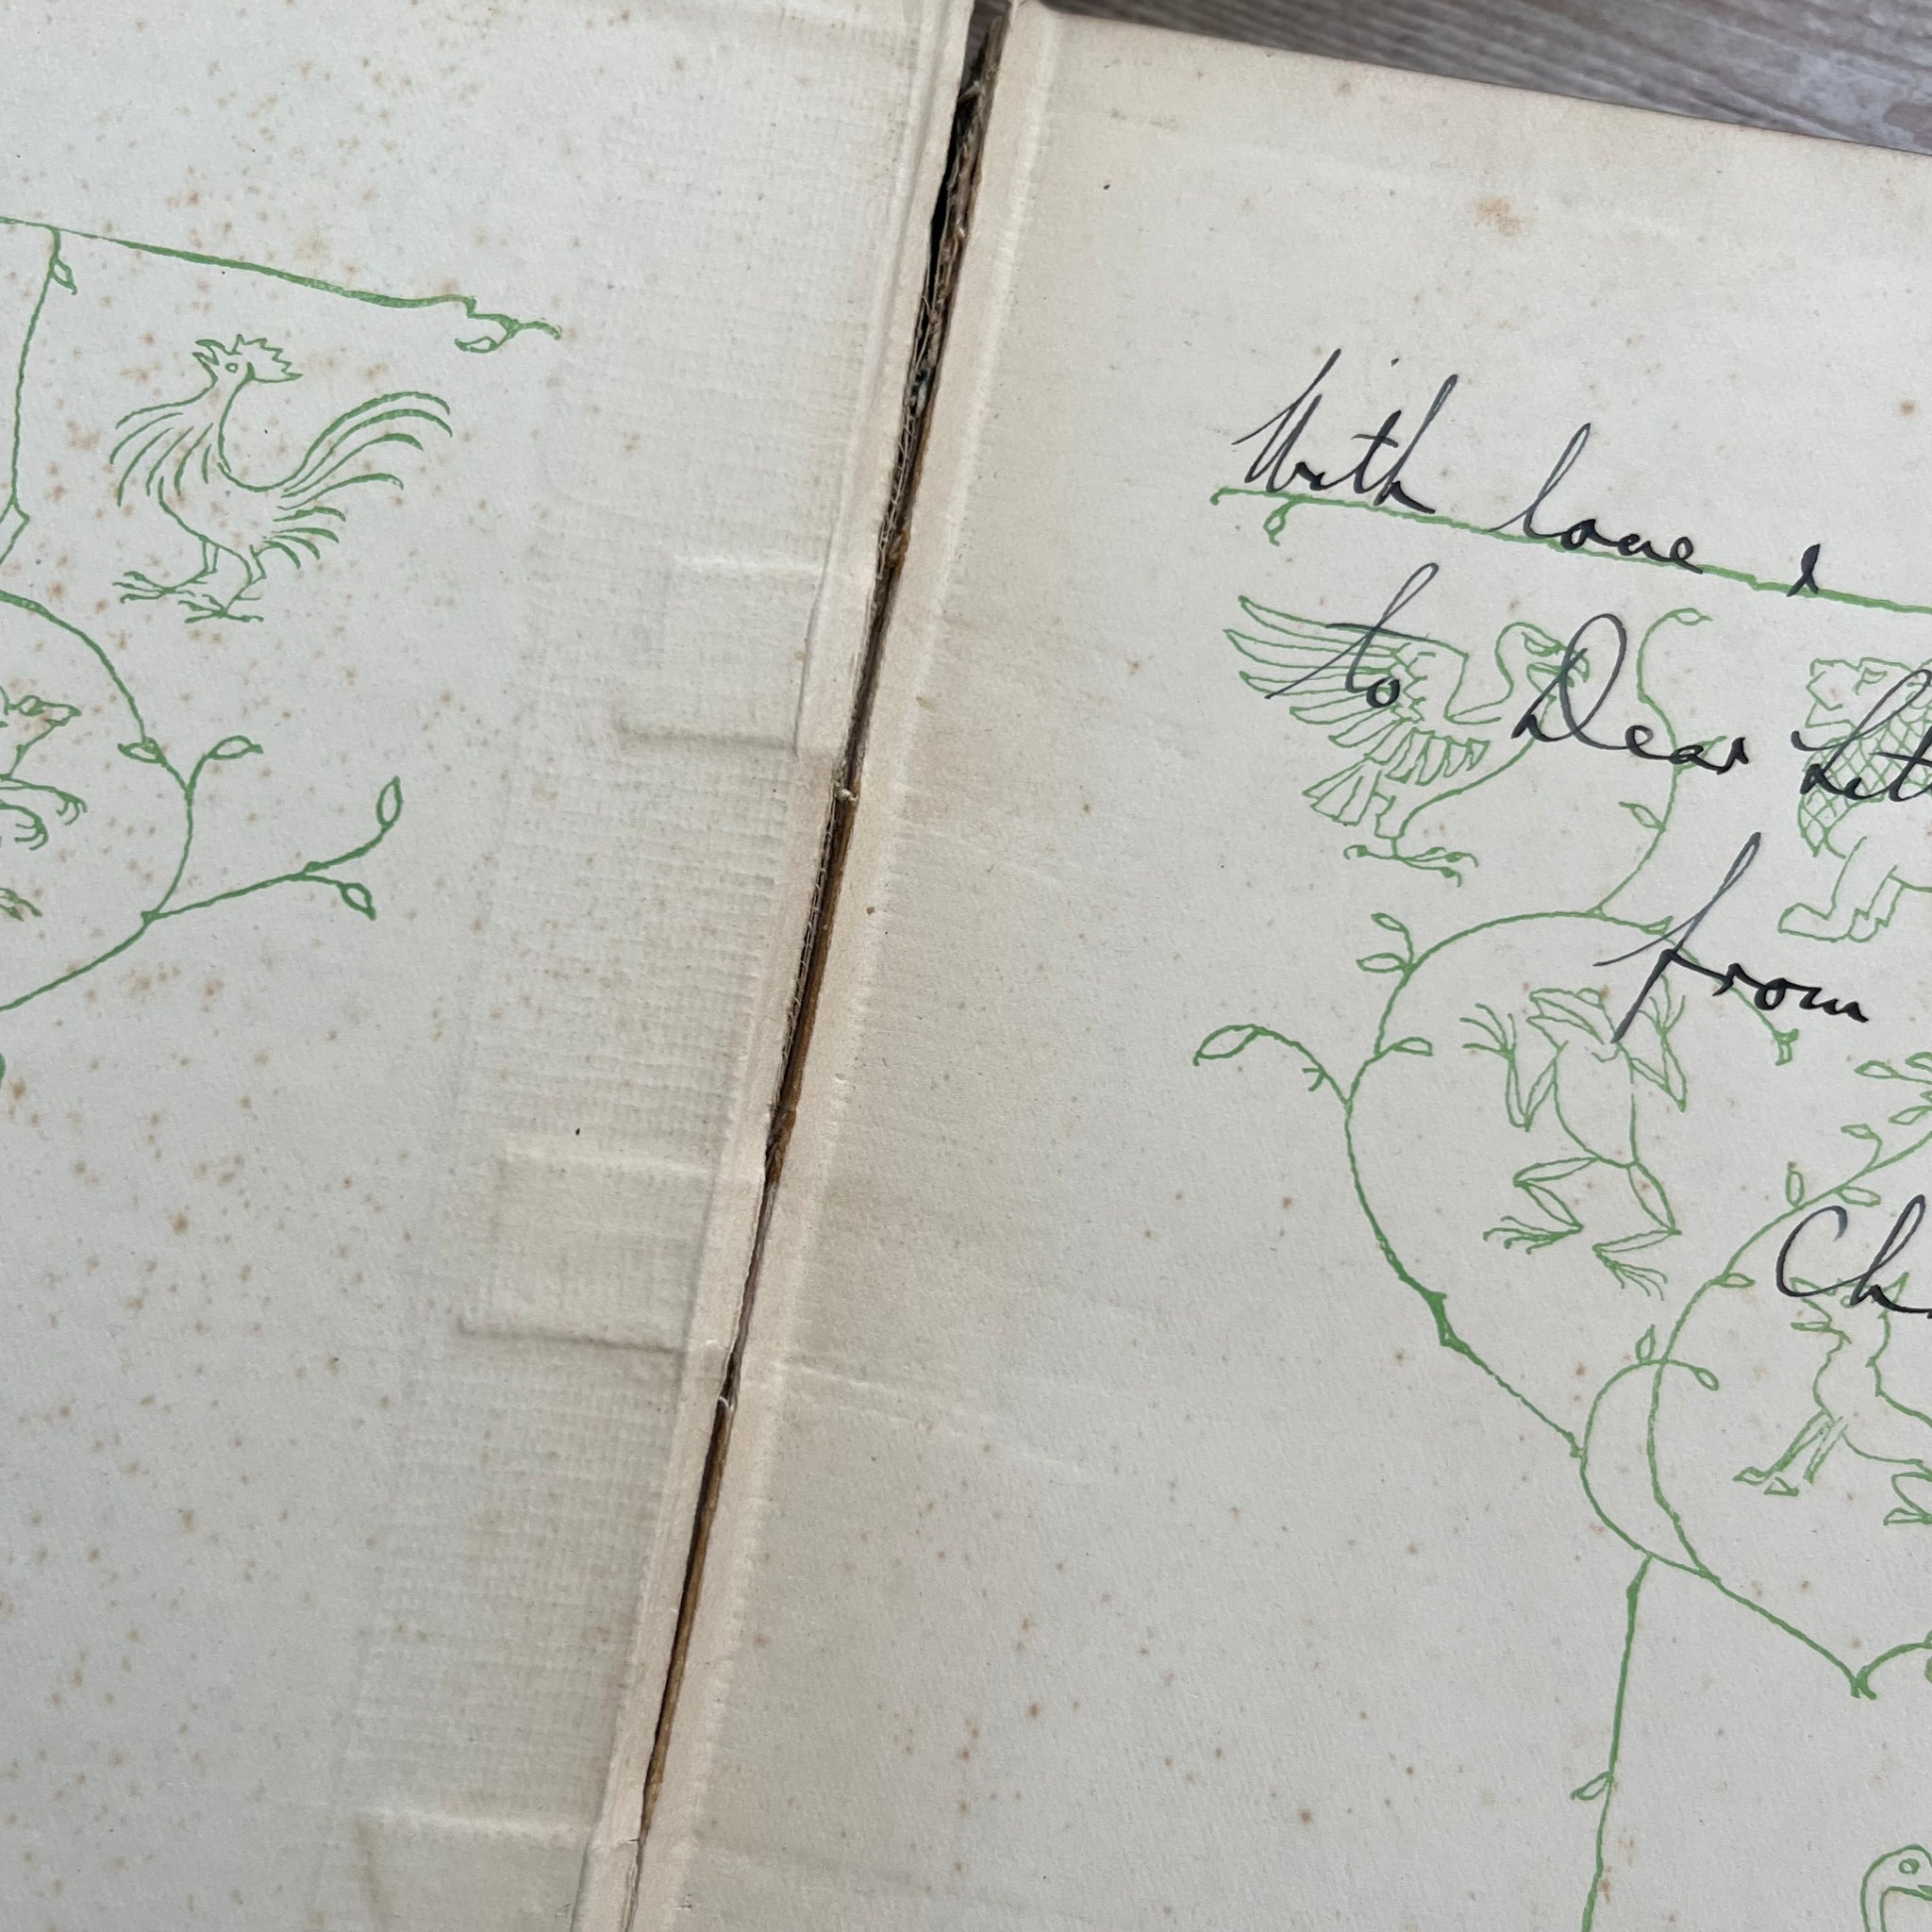 With love &
to Dear Lit
from
Ch